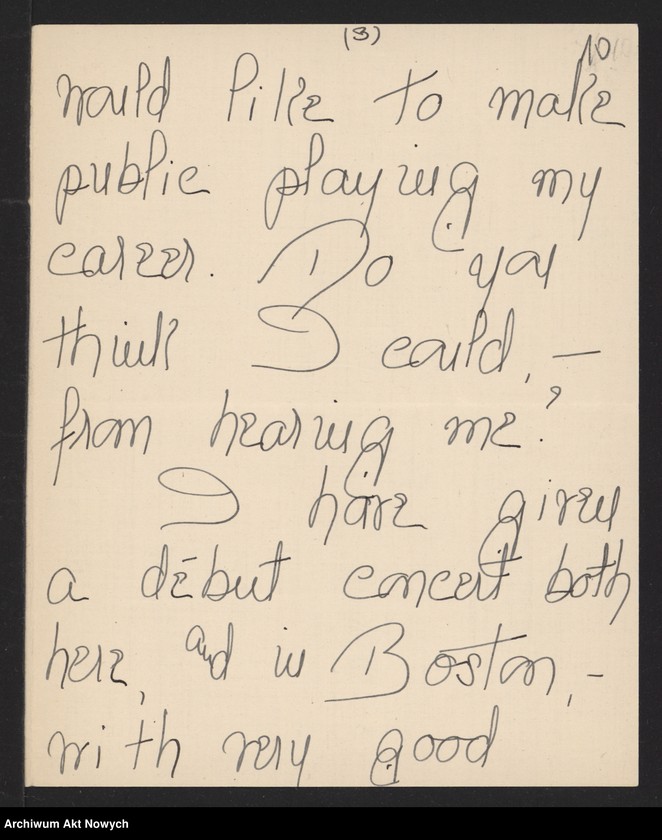 (3)
10
would like to make
public playing my
career. Do you
think I could, —
from hearing me?
I have given
a début concert both
here, and in Boston, –
with very good
Archiwum Akt Nowych